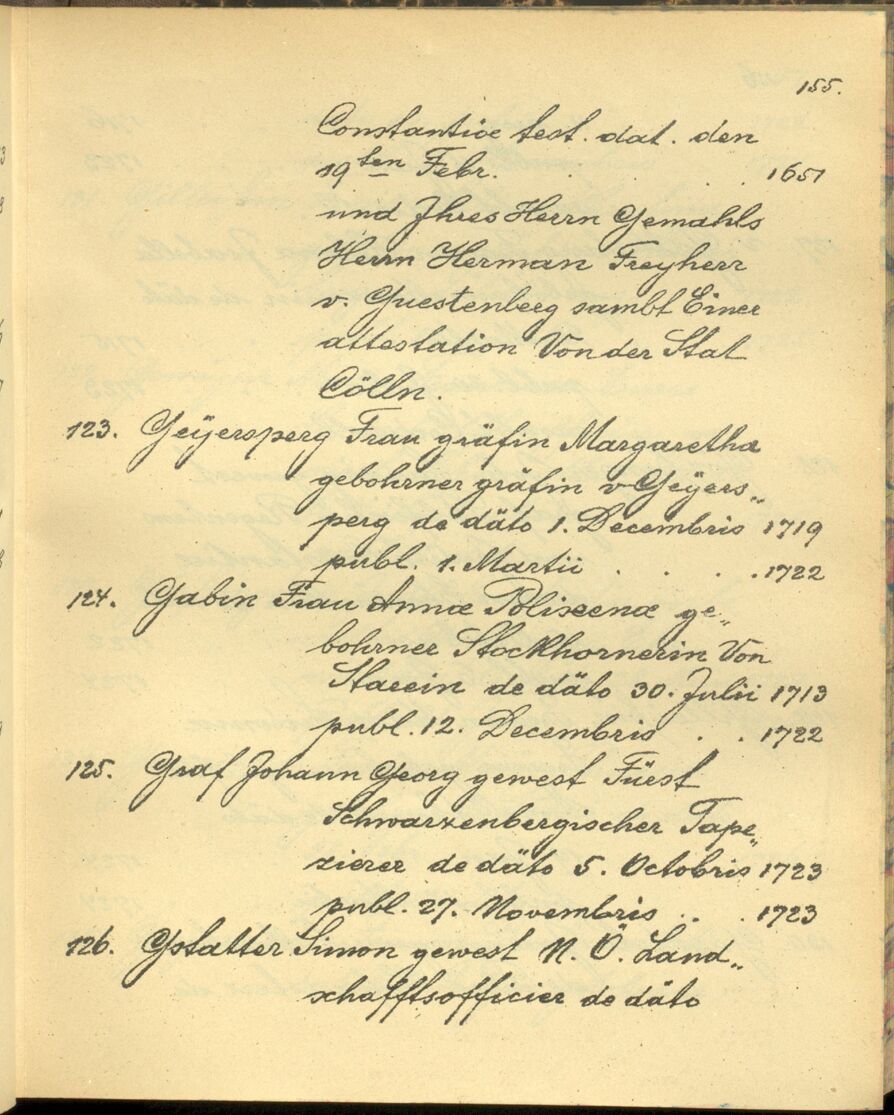 155.
Constantiæ test. dat. den
19ten Febr. . . . 1651
und Ihres Herrn Gemahls
Herrn Herman Freyherr
v. Questenberg sambt Einer
attestation Von der Stat
Cölln.
123. Geÿersperg Frau gräfin Margaretha
gebohrner gräfin v Geÿers„
perg de däto 1. Decembris 1719
publ. 1. Martii . . . . 1722
124. Gabin Frau Annæ Polixenæ ge„
bohrner Stockhornerin Von
Starein de däto 30. Julii 1713
publ. 12. Decembris . . 1722
125. Graf Johann Georg gewest Fürst
Schwarzenbergischer Tape„
zierer de däto 5. Octobris 1723
publ. 27. Novembris .. . 1723
126. Gstatter Simon gewest N. Ö. Land„
schafftsofficier de däto